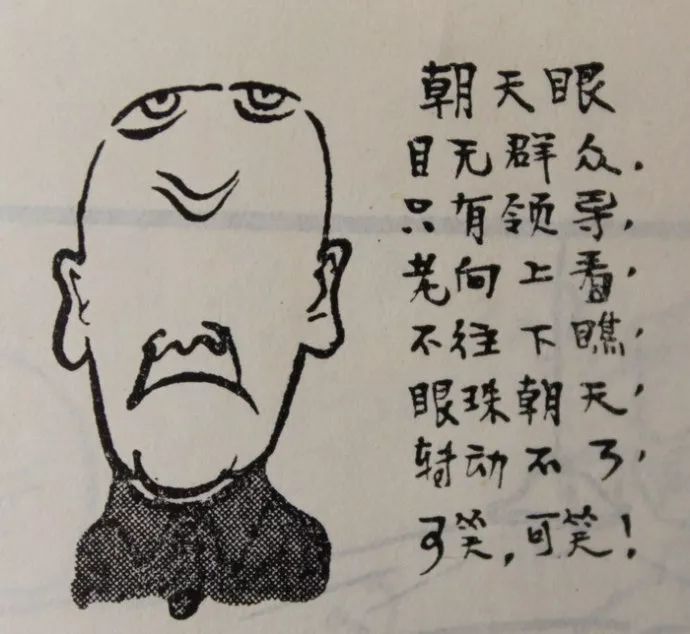 朝天眼
目无群众.
只有领导,
老向上看,
不往下瞧,
眼珠朝天,
转动不了,
可笑,可笑!